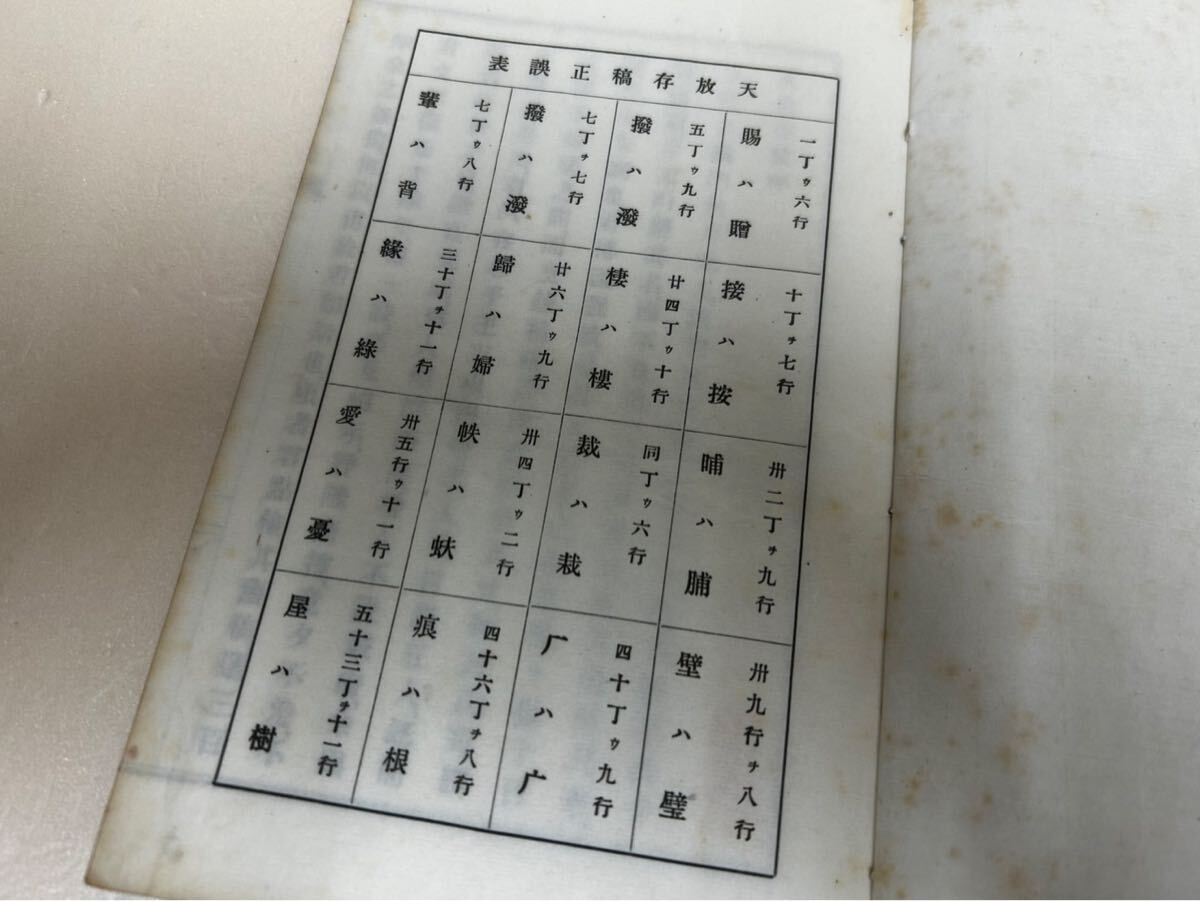 天放存稿正誤表
一丁ゥ六行
賜ハ贈
五丁ゥ九行
撥ハ潑
七丁ヲ七行
撥ハ潑
七丁ゥ八行
輩ハ背
十丁ヲ七行
接ハ按
廿四丁ゥ十行
棲ハ樓
廿六丁ゥ九行
歸ハ婦
三十丁ヲ十一行
緣ハ綠
卅二丁ヲ九行
晡ハ脯
同丁ゥ六行
裁ハ栽
卅四丁ゥ二行
帙ハ蚨
卅五行ゥ十一行
愛ハ憂
卅九行ヲ八行
壁ハ璧
四十丁ゥ九行
厂ハ广
四十六丁ヲ八行
痕ハ根
五十三丁ヲ十一行
屋ハ樹